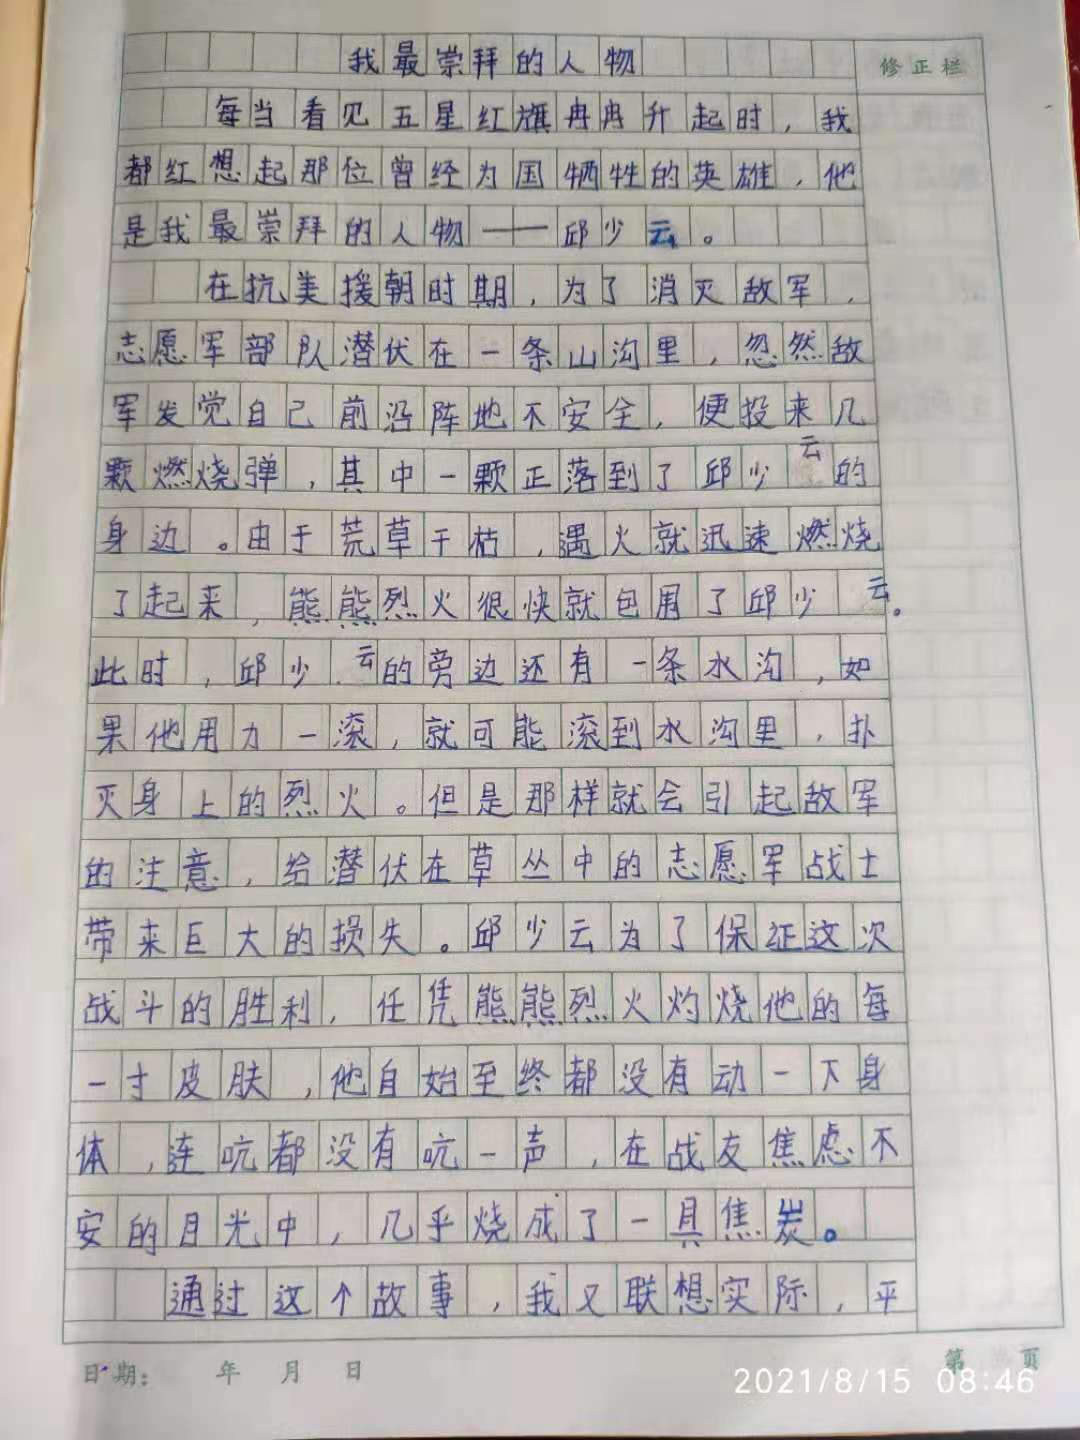 我最崇拜的人物
修正栏
每当看见五星红旗冉冉升起时，我
都红想起那位曾经为国牺牲的英雄，他
是我最崇拜的人物——邱少云。
在抗美援朝时期，为了消灭敌军，
志愿军部队潜伏在一条山沟里，忽然敌
军发觉自己前沿阵地不安全，便投来几
颗燃烧弹，其中一颗正落到了邱少云的
身边。由于荒草干枯，遇火就迅速燃烧
了起来，熊熊烈火很快就包围了邱少云。
此时，邱少云的旁边还有一条水沟，如
果他用力一滚，就可能滚到水沟里，扑
灭身上的烈火。但是那样就会引起敌军
的注意，给潜伏在草丛中的志愿军战士
带来巨大的损失。邱少云为了保证这次
战斗的胜利，任凭熊熊烈火灼烧他的每
一寸皮肤，他自始至终都没有动一下身
体，连吭都没有吭一声，在战友焦虑不
安的目光中，几乎烧成了一具焦炭。
通过这个故事，我又联想实际，平
日期： 年 月 日
第 页
2021/8/15 08:46